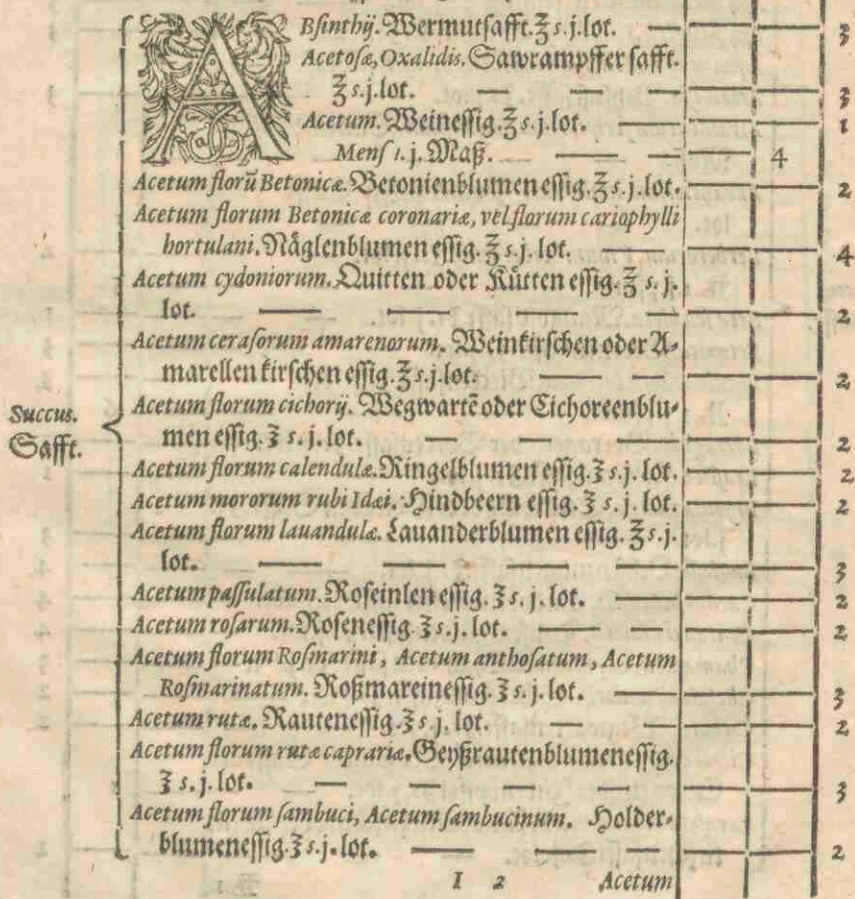 ABſinthij. Wermutſafft. ℥ s. j. lot. — — — 3
Acetoſæ, Oxalidis. Sawrampffer ſafft.
℥ s. j. lot. — — — — — 3
Acetum. Weineſſig. ℥ s. j. lot. — — — — 1
Menſ 1. j. Maß. — — — 4
Acetum florū Betonicæ. Betonienblumen eſſig. ℥ s. j. lot. — — 2
Acetum florum Betonicæ coronariæ, vel florum cariophylli
hortulani. Näglenblumen eſſig. ℥ s. j. lot. — — — 4
Acetum cydoniorum. Quitten oder Kütten eſſig. ℥ s. j.
lot. — — — — — — 2
Acetum ceraſorum amarenorum. Weinkirſchen oder A⸗
marellen kirſchen eſſig. ℥ s. j. lot. — — — — 2
Succus.
Safft.
Acetum florum cichorij. Wegwartē oder Cichoreenblu⸗
men eſſig. ʒ s. j. lot. — — — — — 2
Acetum florum calendulæ. Ringelblumen eſſig. ʒ s. j. lot. — — 2
Acetum mororum rubi Idæi. Hindbeern eſſig. ʒ s. j. lot. — — 2
Acetum florum lauandulæ. Lauanderblumen eſſig. ℥ s. j.
lot. — — — — — — 3
Acetum paſſulatum. Roſeinlen eſſig. ʒ s. j. lot. — — — — 2
Acetum roſarum. Roſeneſſig. ʒ s. j. lot. — — — — 2
Acetum florum Roſmarini, Acetum anthoſatum, Acetum
Roſmarinatum. Roßmareineſſig. ʒ s. j. lot. — — — 3
Acetum rutæ. Rauteneſſig. ʒ s. j. lot. — — — — 2
Acetum florum rutæ caprariæ. Geyßrautenblumeneſſig.
ʒ s. j. lot. — — — — — — 3
Acetum florum ſambuci, Acetum ſambucinum. Holder⸗
blumeneſſig. ʒ s. j. lot. — — — — — 2
I 2 Acetum